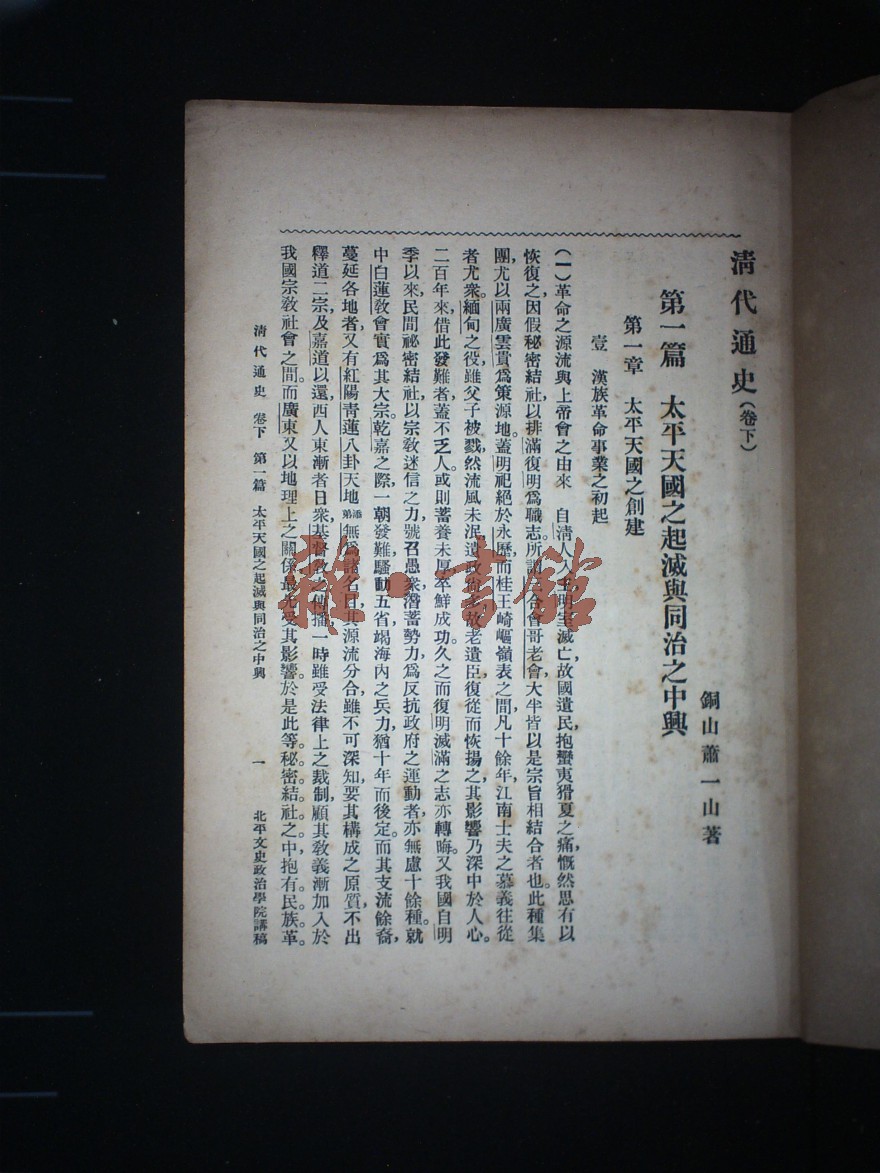 清代通史(卷下)
銅山蕭一山著
第一篇 太平天國之起滅與同治之中興
第一章 太平天國之創建
壹 漢族革命事業之初起
(一)革命之源流與上帝會之由來 自清人入主明室滅亡,故國遺民,抱蠻夷猾夏之痛,慨然思有以
恢復之,因假秘密結社,以排滿復明爲職志。所謂三合會哥老會大半皆以是宗旨相結合者也。此種集
團,尤以兩廣雲貴爲策源地。蓋明祀絕於永歷,而桂王崎嶇嶺表之間,凡十餘年,江南士夫之慕義往從
者尤衆。緬甸之役,雖父子被戮,然流風未泯,遺政猶多,故老遺臣,復從而恢揚之,其影響乃深中於人心。
二百年來,借此發難者,蓋不乏人。或則蓄養未厚,卒鮮成功,久之而復明滅滿之志亦轉晦。又我國自明
季以來,民間祕密結社,以宗敎迷信之力,號召愚衆,潛蓄勢力,爲反抗政府之運動者,亦無慮十餘種。就
中白蓮敎會實爲其大宗。乾嘉之際,一朝發難,騷動五省,竭海內之兵力,猶十年而後定。而其支流餘裔,
蔓延各地者,又有紅陽靑蓮八卦天地添弟無爲諸名目,其源流分合,雖不可深知,要其構成之原質,不出
釋道二宗。及嘉道以還,西人東漸者日衆,基督敎之傳播,一時雖受法律上之裁制,顧其敎義漸加入於
我國宗敎社會之間。而廣東又以地理上之關係,最先受其影響。於是此等秘密結社之中,抱有民族革
清代通史 卷下 第一篇 太平天國之起滅與同治之中興 一 北平文史政治學院講稿
雜·書館